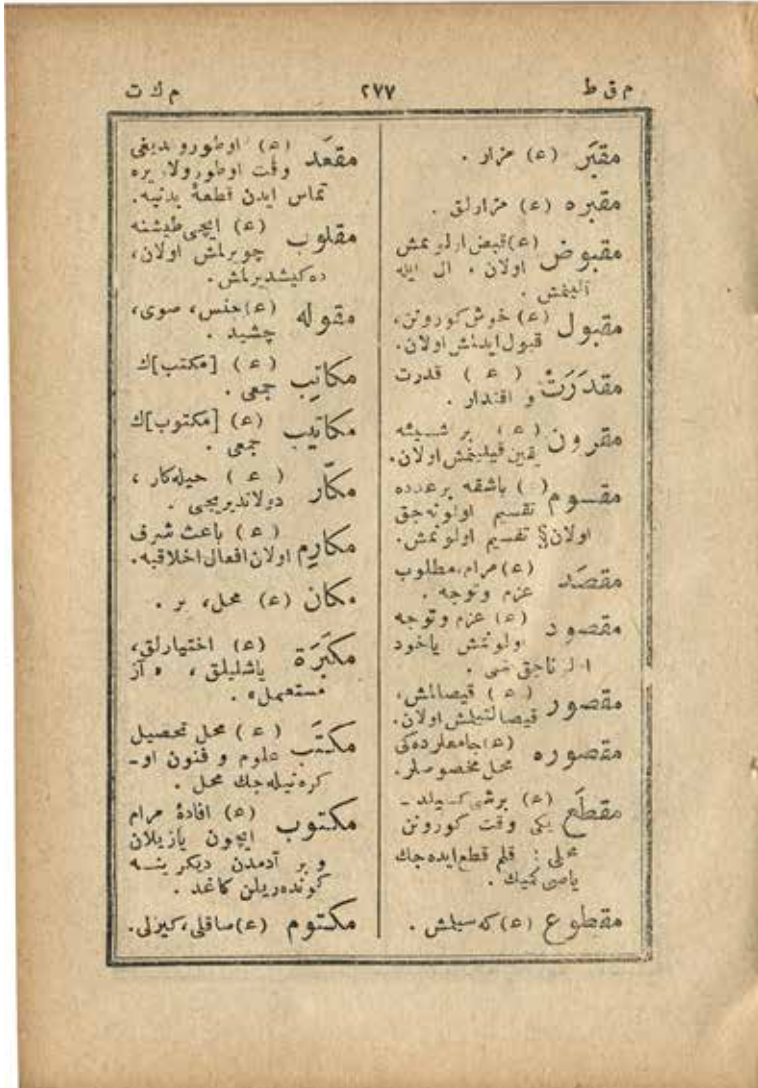 م ق ط ٢٧٧ م ك ت
مقبَر (ع) مزار .
مقبره (ع) مزارلق .
مقبوض (ع) قبض اولونمش
اولان . ال ايله
آلينمش .
مقبول (ع) خوش كورونن،
قبول ايدلمش اولان.
مقدَرَتْ ( ع ) قدرت
و اقتدار .
مقرون (ع) بر شيئه
يقين قيلينمش اولان.
مقسوم ( ) باشقه بر عدده
تقسيم اولونه جق
اولان§ تقسيم اولونمش.
مقصَد (ع) مرام، مطلوب
عزم وتوجه .
مقصود (ع) عزم وتوجه
اولونمش ياخود
مقصور (ع) قيصالمش،
قيصالتيلمش اولان.
مقصوره (ع) جامعلرده كى
محل مخصوصلر.
مقطَع (ع) برشى كسيلد ـ
يكى وقت كورونن
محلى : قلم قطع ايده جك
ياصى كميك .
مقطوع (ع) كه سيلمش .
مقعَد (ع) اوطوروديغى
وقت اوطورولان يره
تماس ايدن قطعهٔ بدنيه.
مقلوب (ع) ايچى طيشنه
چويرلمش اولان،
ده كيشديرلمش.
مقوله (ع) جنس، صوى،
چشيد .
مكاتِب (ع) [مكتب]ك
جمعى .
مكاتيب (ع) [مكتوب]ك
جمعى .
مكّار ( ع ) حيله كار ،
دولانديريجى .
مكارِم (ع) باعث شرف
اولان افعال اخلاقيه.
مكان (ع) محل، ير .
مكبَرَة (ع) اختيارلق،
ياشليلق ، « آز
مستعمل» .
مكتَب ( ع ) محل تحصيل
علوم و فنون او ـ
كره نيله جك محل .
مكتوب (ع) افادهٔ مرام
ايچون يازيلان
و بر آدمدن ديكرينه
كوندەريلن كاغد .
مكتوم (ع) صاقلى، كيزلى.